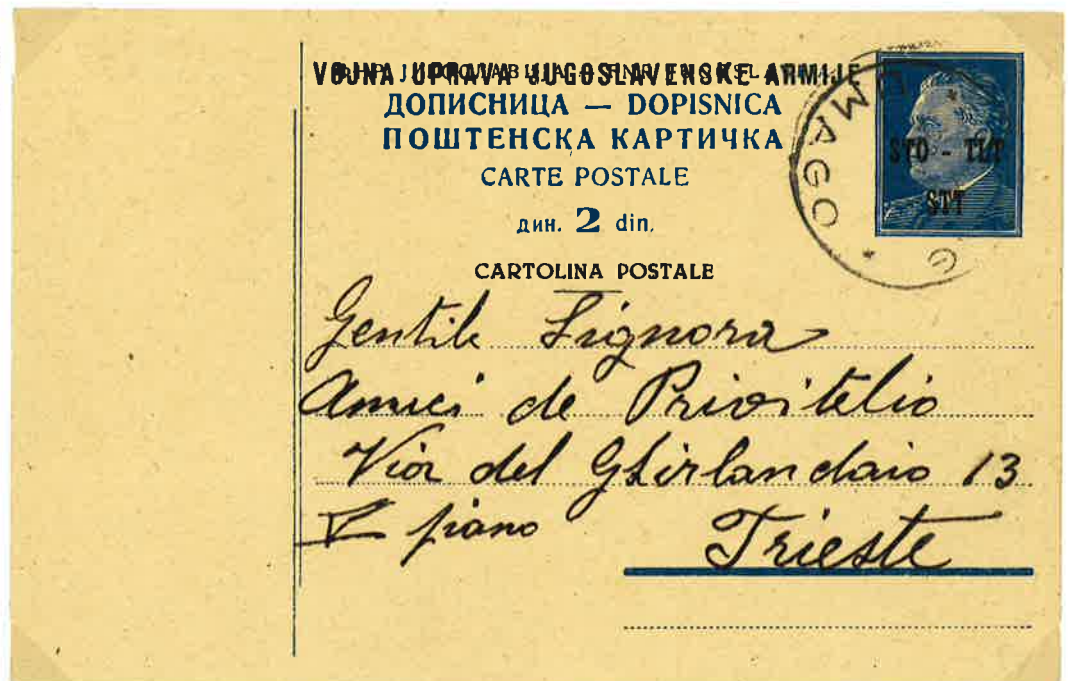 VOJNA UPRAVA JUGOSLAVENSKE ARMIJE
ДОПИСНИЦА — DOPISNICA
ПОШТЕНСКА КАРТИЧКА
CARTE POSTALE
дин. 2 din.
CARTOLINA POSTALE
STO - TLT
STT
UMAGO
G
Gentile Signora
Amici de Privitelio
Via del Ghirlandaio 13
V piano
Trieste